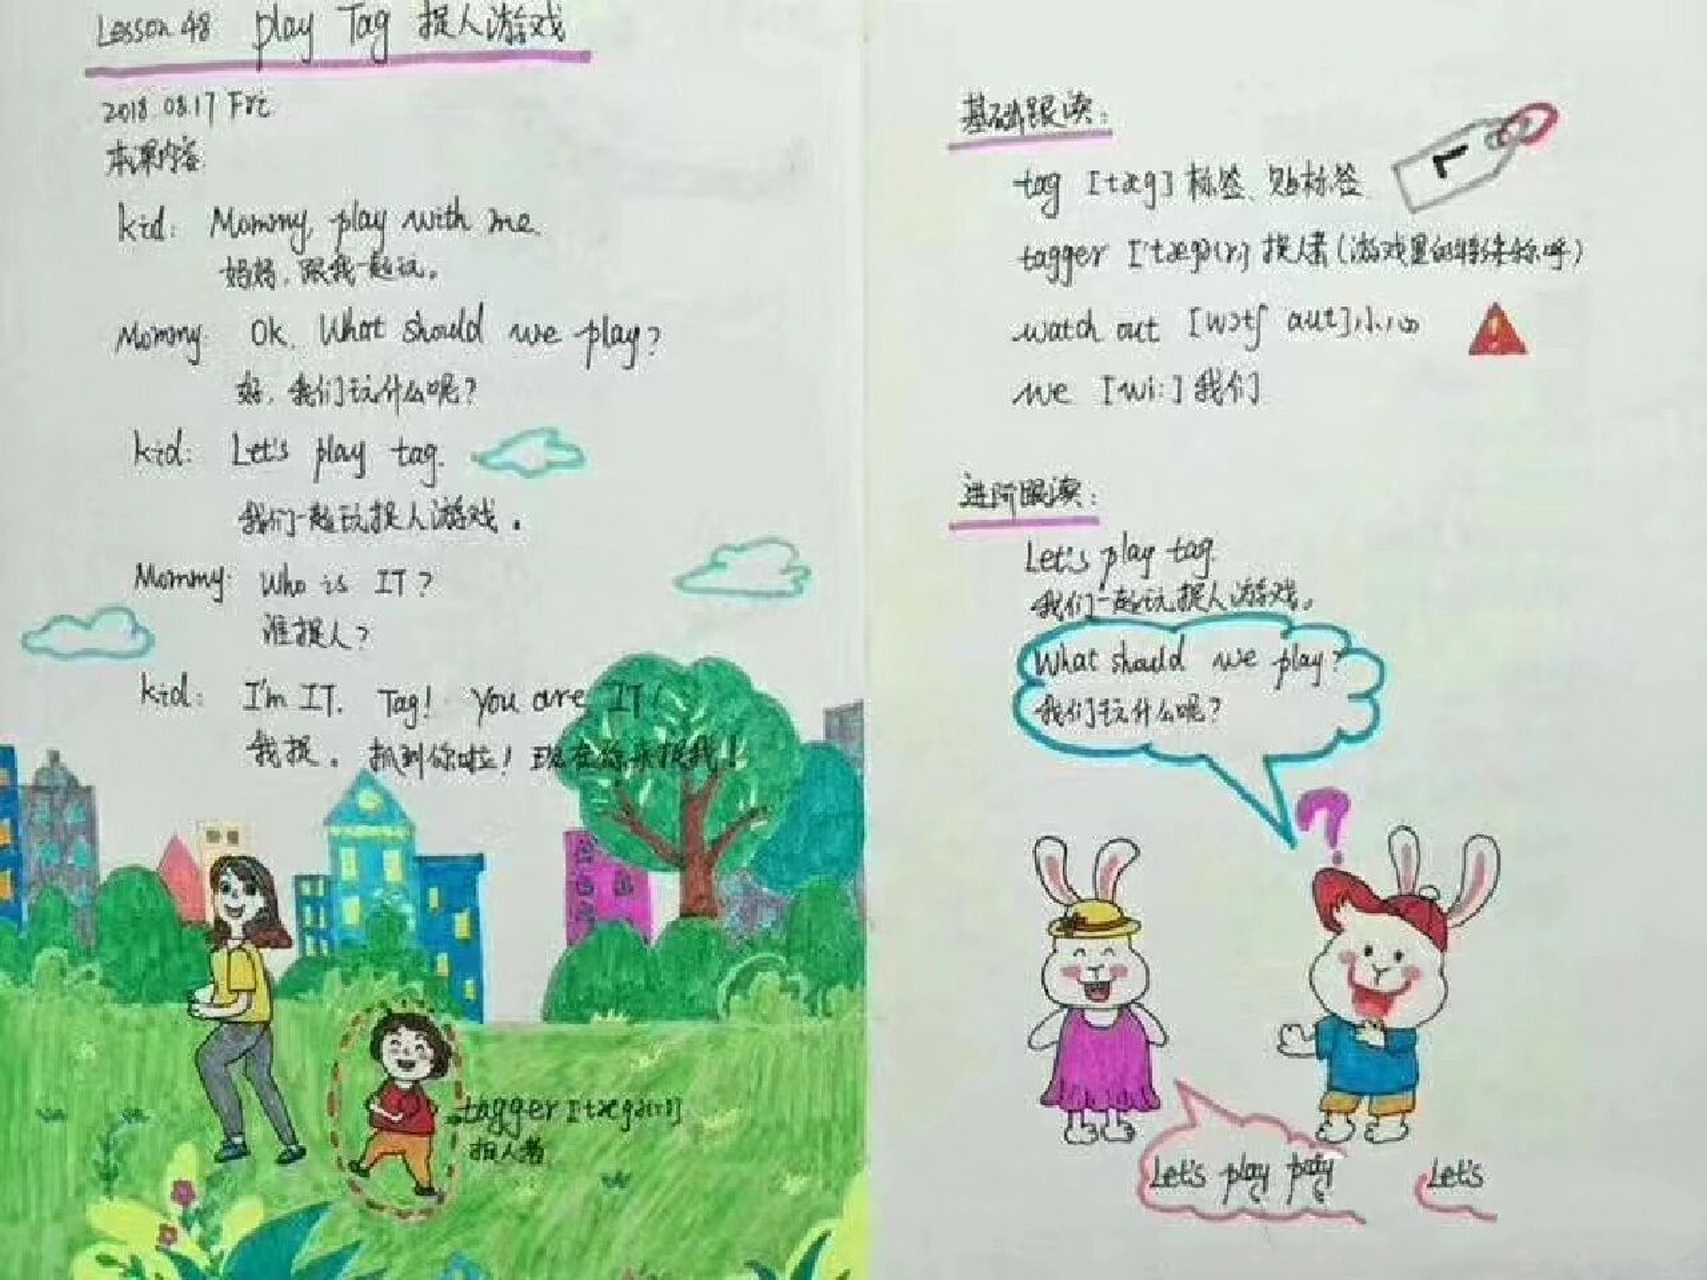 Lesson 48 play Tag 捉人游戏
2018.08.17 Fri
本课内容
kid: Mommy, play with me.
妈妈,跟我一起玩。
Mommy: Ok. What should we play?
好,我们玩什么呢?
kid: Let's play tag.
我们一起玩捉人游戏。
Mommy: Who is IT?
谁捉人?
kid: I'm IT. Tag! You are IT!
我捉。抓到你啦!现在你来捉我!
tagger [tægə(r)]
捉人者
基础跟读:
tag [tæg] 标签、贴标签
tagger ['tægə(r)] 捉人者(游戏里的特殊称呼)
watch out [wɔtʃ aut] 小心
we [wi:] 我们
进阶跟读:
Let's play tag.
我们一起玩捉人游戏。
What should we play?
我们玩什么呢?
?
Let's play Let's